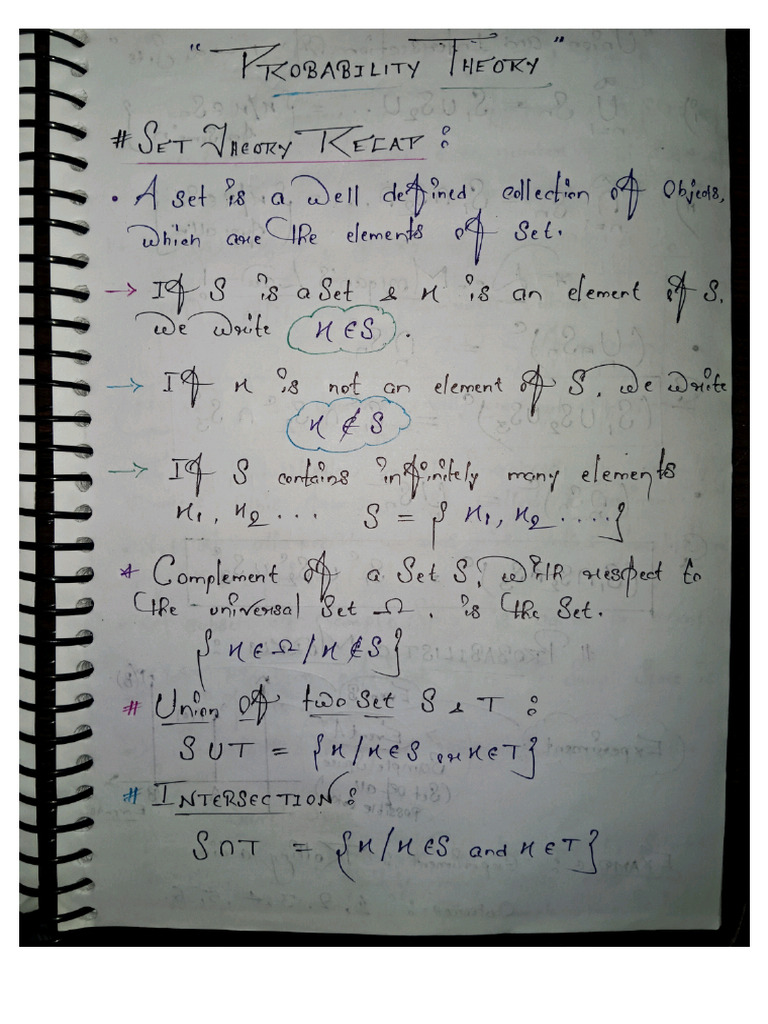 "PROBABILITY THEORY"
# SET THEORY RECAP :
• A set is a well defined collection of Objects,
which are the elements of Set.
→ If S is a Set & x is an element of S,
we write x ∈ S .
→ If x is not an element of S, we write
x ∉ S
→ If S contains infinitely many elements
x1, x2 ... S = { x1, x2 ....}
* Complement of a Set S, with respect to
the universal Set Ω, is the Set.
{ x ∈ Ω / x ∉ S }
# Union of two Set S & T :
S ∪ T = { x / x ∈ S or x ∈ T }
# INTERSECTION :
S ∩ T = { x / x ∈ S and x ∈ T }